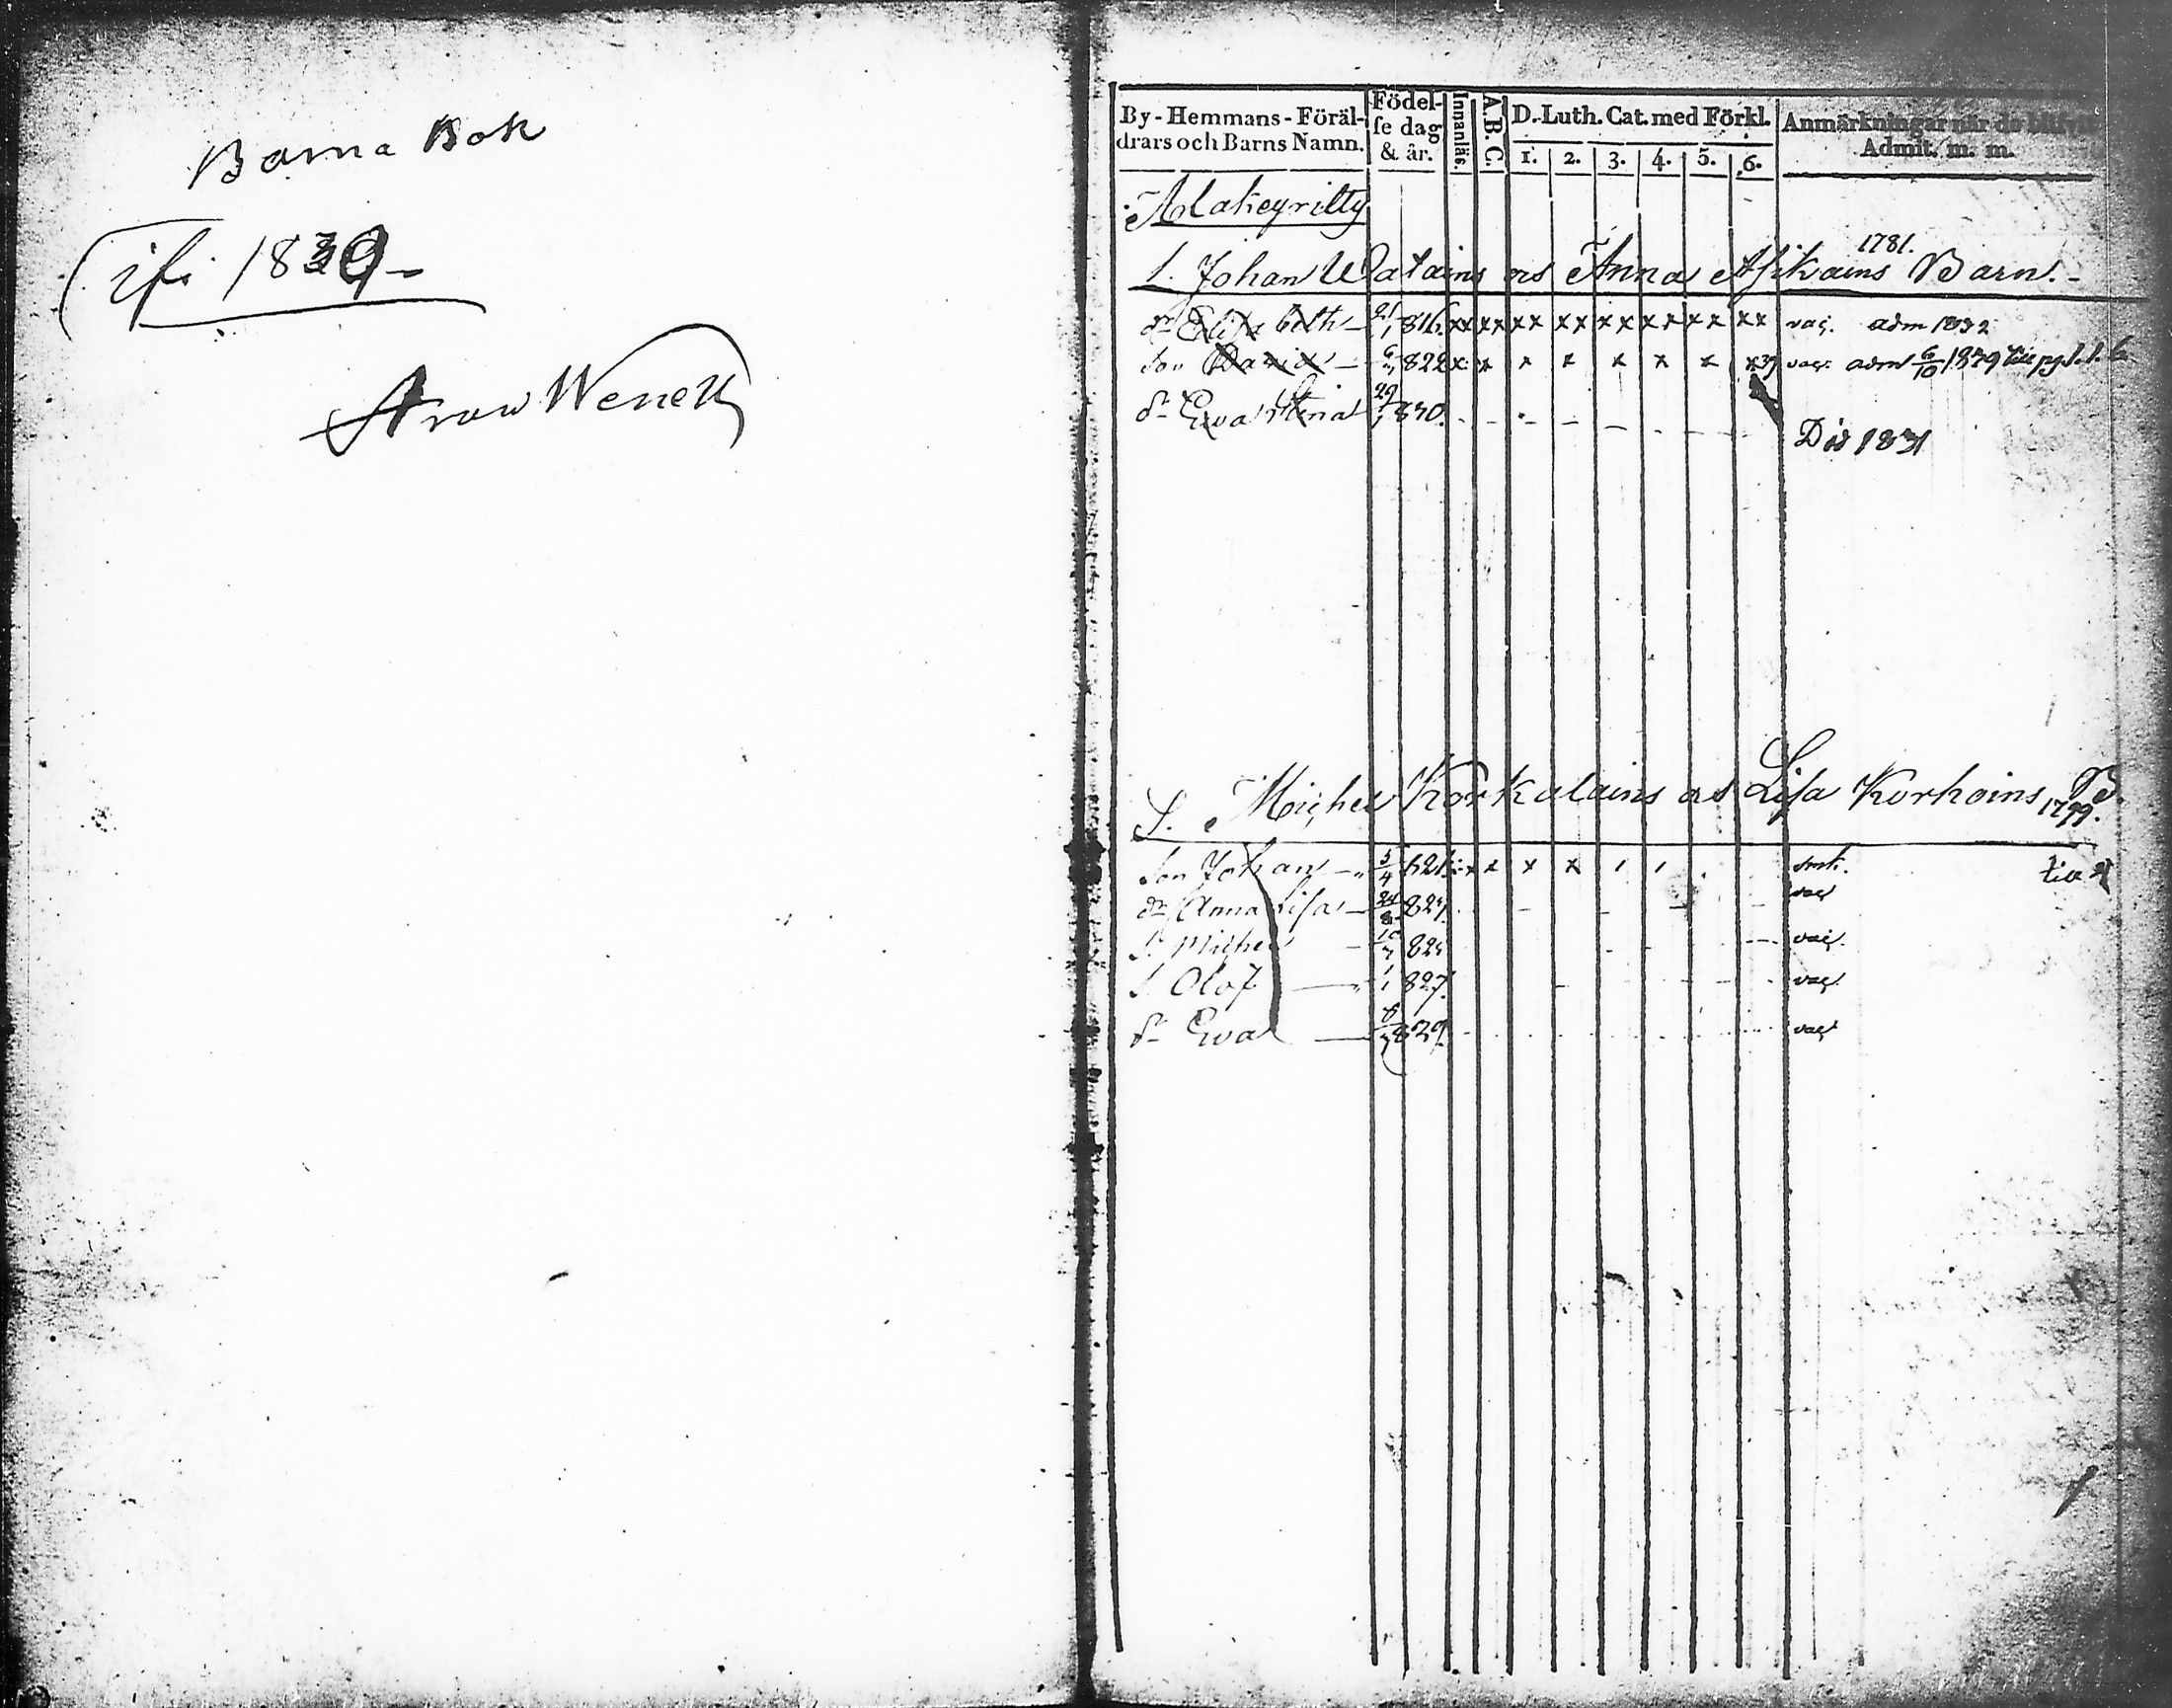 Barna Bok
ifr. 1830
By-Hemmans-Föräl-
drars och Barns Namn.
Födel-
se dag
& år.
Innanläs.
A.B.C.
D. Luth. Cat. med Förkl.
1. 2. 3. 4. 5. 6.
Anmärkningar när de blifvit
Admit. m. m.
Alakeyritty
1781.
L. Johan Walains os Anna Asikains Barn.
dr Elisabeth 816 xx xx xx xx xx xx xx xx vac. adm 1832
Son David 822 x x x x x x x x 39 vac. adm 6/10 1839 till pg.
dr Ewa Stina 29/1 830.
Död 1831
L. Michel Korkalains os Lisa Korhoins B.
1799.
Son Johan 5/4 821 x x x x smk. till
dr Anna Lisa 824 vac
S. Michel 825 vac.
S. Olof 1/1 827 vac.
dr Ewa 829 vac